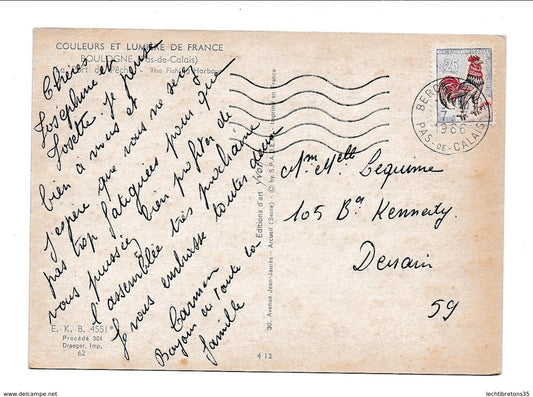 COULEURS ET LUMIÈRE DE FRANCE
BOULOGNE (Pas-de-Calais)
Le Port de Pêche - The Fishing Harbour
Chères
Josephine et
Josette je pense
bien à vous et
J'espère que vous ne serez
pas trop fatiguées pour que
vous puissiez bien profiter de
l'assemblée très prochaine
Je vous embrasse toutes deux
Carmen
Bonjour à toute la
famille
E. K. B. 4551
Procédé 301
Draeger, Imp.
62
412
30, Avenue Jean-Jaurès - Arcueil (Seine) - © by S.P.A.D.E.M.
Editions d'art YVON
Imprimé en France
25
BERCK
7-
1966
PAS-DE-CALAIS
Mme Melle Lequime
105 Bd Kennedy
Denain
59
lechtibretons35